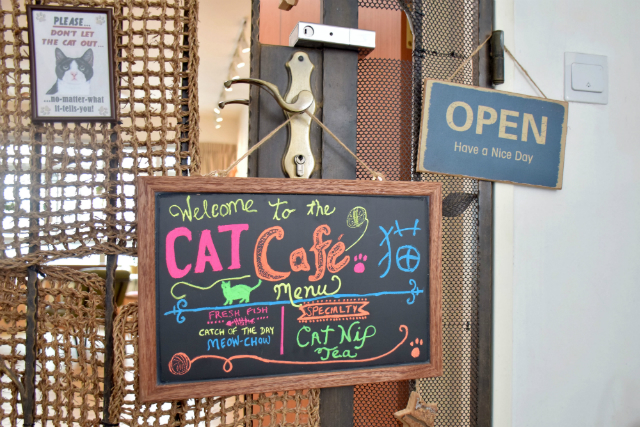 PLEASE...
DON'T LET
THE CAT OUT...
...no-matter-what
it-tells-you!
OPEN
Have a Nice Day
Welcome to the
CAT Café 猫
Menu
FRESH FISH
CATCH OF THE DAY
MEOW-CHOW
SPECIALTY
CATNIP
Tea